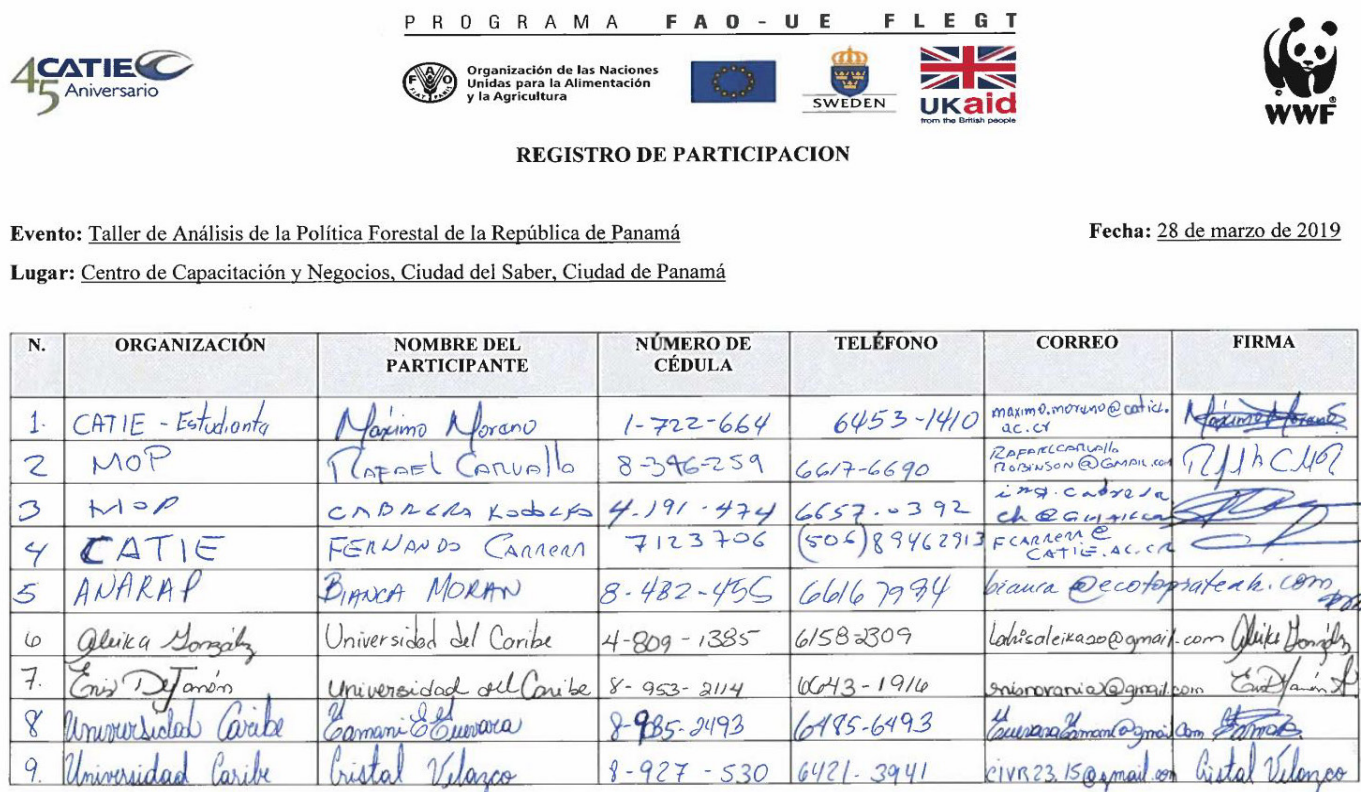 PROGRAMA FAO-UE FLEGT
45 CATIE
Aniversario
FAO
FIAT PANIS
Organización de las Naciones
Unidas para la Alimentación
y la Agricultura
SWEDEN
UKaid
from the British people
WWF
REGISTRO DE PARTICIPACION
Evento: Taller de Análisis de la Política Forestal de la República de Panamá Fecha: 28 de marzo de 2019
Lugar: Centro de Capacitación y Negocios, Ciudad del Saber, Ciudad de Panamá
N. ORGANIZACIÓN NOMBRE DEL PARTICIPANTE NÚMERO DE CÉDULA TELÉFONO CORREO FIRMA
1. CATIE - Estudiante Máximo Moreno 1-722-664 6453-1410 maximo.moreno@catie.ac.cr Máximo Moreno
2 MOP RAFAEL CARVAllo 8-396-259 6617-6690 RAFAELCARVAllo ROBINSON@GMAIL.com
3 MOP CABRERA RODOLFO 4.191.474 6657.0392 ing.cabrera
4 CATIE FERNANDO CARRERA 7123706 (506)89462913 FCARRERA@CATIE.AC.CR
5 ANARAP BIANCA MORAN 8-482-455 66167994
6 Aleika González Universidad del Caribe 4-809-1385 6158-2309 Aleika González
7. Enis DeJanón Universidad del Caribe 8-953-2114 6643-1916
8 Universidad Caribe Yamani E Guevara 8-985-2493 6485-6493
9. Universidad Caribe Cristal Velazco 8-927-530 6421-3941 civr23.15@gmail.com Cristal Velazco